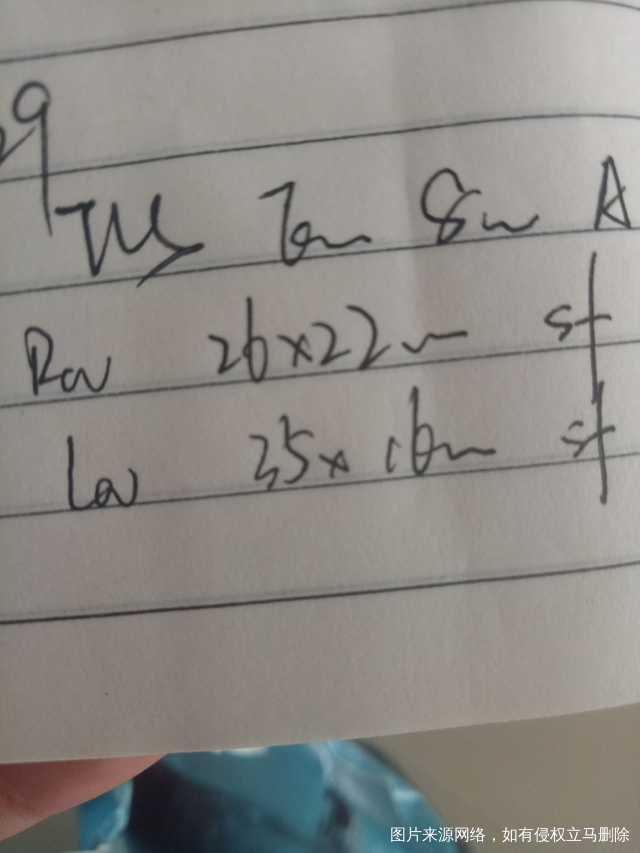 29
TVS 7mm 8mm A
Rov 26×22mm sf
Lov 35×16mm sf
图片来源网络，如有侵权立马删除